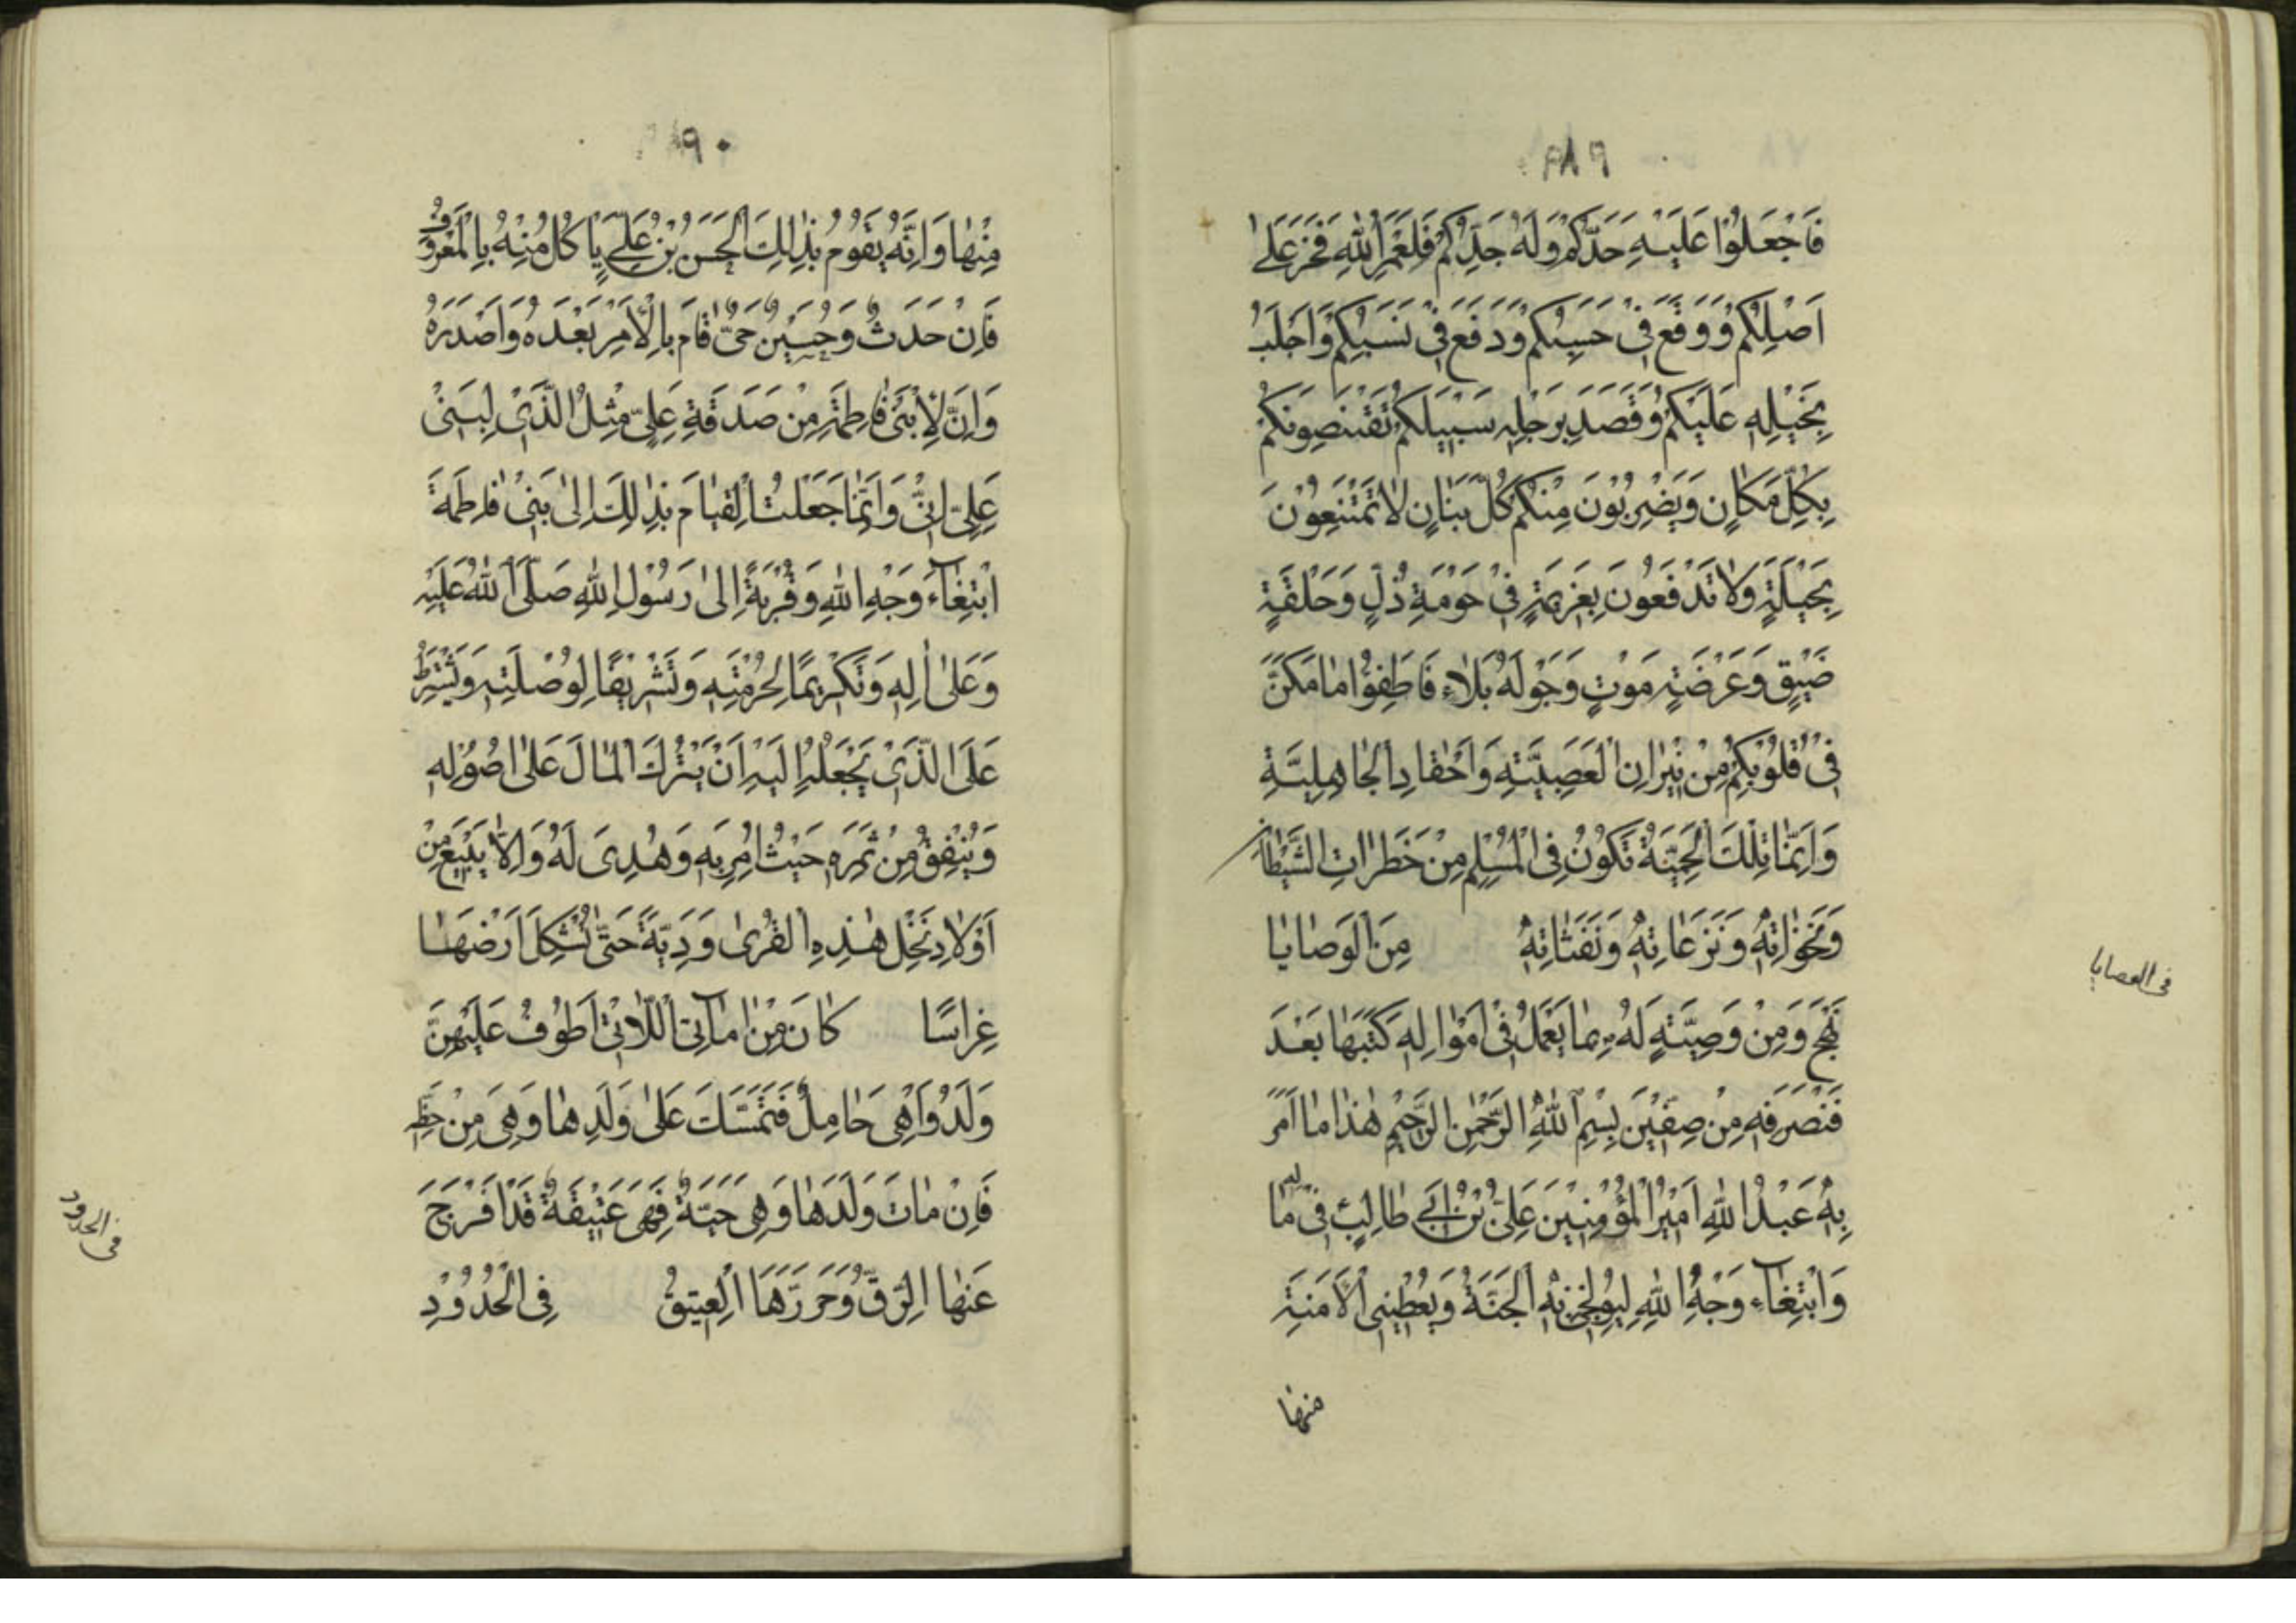 ٨٩
فَاجْعَلُوْا عَلَيْهِ حَدَّكُمْ وَلَهُ جَدِّكُمْ فَلَعَمْرُ اللهِ فَخَرَ عَلىٰ
اَصْلِكُمْ وَوَقَعَ فِىْ حَسَبِكُمْ وَدَفَعَ فِىْ نَسَبِكُمْ وَاَجْلَبَ
بِخَيْلِهٖ عَلَيْكُمْ وَقَصَدَ بِرَجْلِهٖ سَبِيْلَكُمْ تَقْتَنِصُوْنَكُمْ
بِكُلِّ مَكَانٍ وَيَضْرِبُوْنَ مِنْكُمْ كُلَّ بَنَانٍ لَا تَمْتَنِعُوْنَ
بِحَيْلَةٍ وَلَا تَدْفَعُوْنَ بِعَزِيْمَةٍ فِىْ حَوْمَةِ ذُلٍّ وَحَلْقَةِ
ضَيْقٍ وَعَرْضَةِ مَوْتٍ وَجَوْلَةِ بَلَاءٍ فَاطْفِئُوْا مَا مَكَنَّ
فِىْ قُلُوْبِكُمْ مِنْ نِيْرَانِ الْعَصَبِيَّةِ وَاَحْقَادِ الْجَاهِلِيَّةِ
وَاِنَّمَا تِلْكَ الْحَمِيَّةُ تَكُوْنُ فِى الْمُسْلِمِ مِنْ خَطَرَاتِ الشَّيْطَانِ
وَنَخَوَاتِهٖ وَنَزَعَاتِهٖ وَنَفَثَاتِهٖ مِنَ الْوَصَايَا
نهج وَمِنْ وَصِيَّتِهٖ لَهُ بِمَا يَعْمَلُ فِىْ اَمْوَالِهٖ كَتَبَهَا بَعْدَ
فَنْصَرَفِهٖ مِنْ صِفِّيْنَ بِسْمِ اللهِ الرَّحْمٰنِ الرَّحِيْمِ هٰذَا مَا اَمَرَ
بِهٖ عَبْدُ اللهِ اَمِيْرُ الْمُؤْمِنِيْنَ عَلِىُّ بْنُ اَبِىْ طَالِبٍ فِىْ مَالِهٖ
وَابْتِغَآءِ وَجْهِ اللهِ لِيُوْلِجَنِىْ بِهِ الْجَنَّةَ وَيُعْطِيَنِىْ الْاَمَنَةِ
منها
فى الوصايا
٩٠
مِنْهَا وَاِنَّهُ يَقُوْمُ بِذٰلِكَ الْحَسَنُ بْنُ عَلِىٍّ يَاكُلُ مِنْهُ بِالْمَعْرُوْفِ
فَاِنْ حَدَثَ وَحُسَيْنٌ حَىٌّ قَامَ بِالْاَمْرِ بَعْدَهُ وَاَصْدَرَهُ
وَاِنَّ لِاِبْنَىْ فَاطِمَةَ مِنْ صَدَقَةِ عَلِىٍّ مِثْلُ الَّذِىْ لِبَنِىْ
عَلِىٍّ اِنِّىْ وَاِنَّمَا جَعَلْتُ الْقِيَامَ بِذٰلِكَ اِلىٰ بَنِىْ فَاطِمَةَ
ابْتِغَآءَ وَجْهِ اللهِ وَقُرْبَةً اِلىٰ رَسُوْلِ اللهِ صَلَّى اللهُ عَلَيْهِ
وَعَلىٰ اٰلِهٖ وَتَكْرِيْمًا لِحُرْمَتِهٖ وَتَشْرِيْفًا لِوُصْلَتِهٖ وَيَشْتَرِطُ
عَلَى الَّذِىْ يَجْعَلُهُ اِلَيْهِ اَنْ يَتْرُكَ الْمَالَ عَلىٰ اُصُوْلِهٖ
وَيُنْفِقُ مِنْ ثَمَرِهٖ حَيْثُ اُمِرَ بِهٖ وَهُدِىَ لَهُ وَاِلَّا يَبِيْعَ مِنْ
اَوْلَادِ نَخْلِ هٰذِهِ الْقُرىٰ وَدِيَّةً حَتّٰى تُشْكِلَ اَرْضُهَا
غِرَاسًا كَانَ مِنْ اِمَآئِى اللَّاتِىْ اَطُوْفُ عَلَيْهِنَّ
وَلَدٌ وَاَهِىَ حَامِلٌ فَتُمْسَكَ عَلىٰ وَلَدِهَا وَهِىَ مِنْ حَظِّهٖ
فَاِنْ مَاتَ وَلَدَهَا وَهِىَ حَيَّةٌ فَهِىَ عَتِيْقَةٌ قَدْ اَفْرَجَ
عَنْهَا الرِّقُّ وَحَرَّرَهَا الْعِتِيْقُ فِى الْحُدُوْدِ
فى الحدود